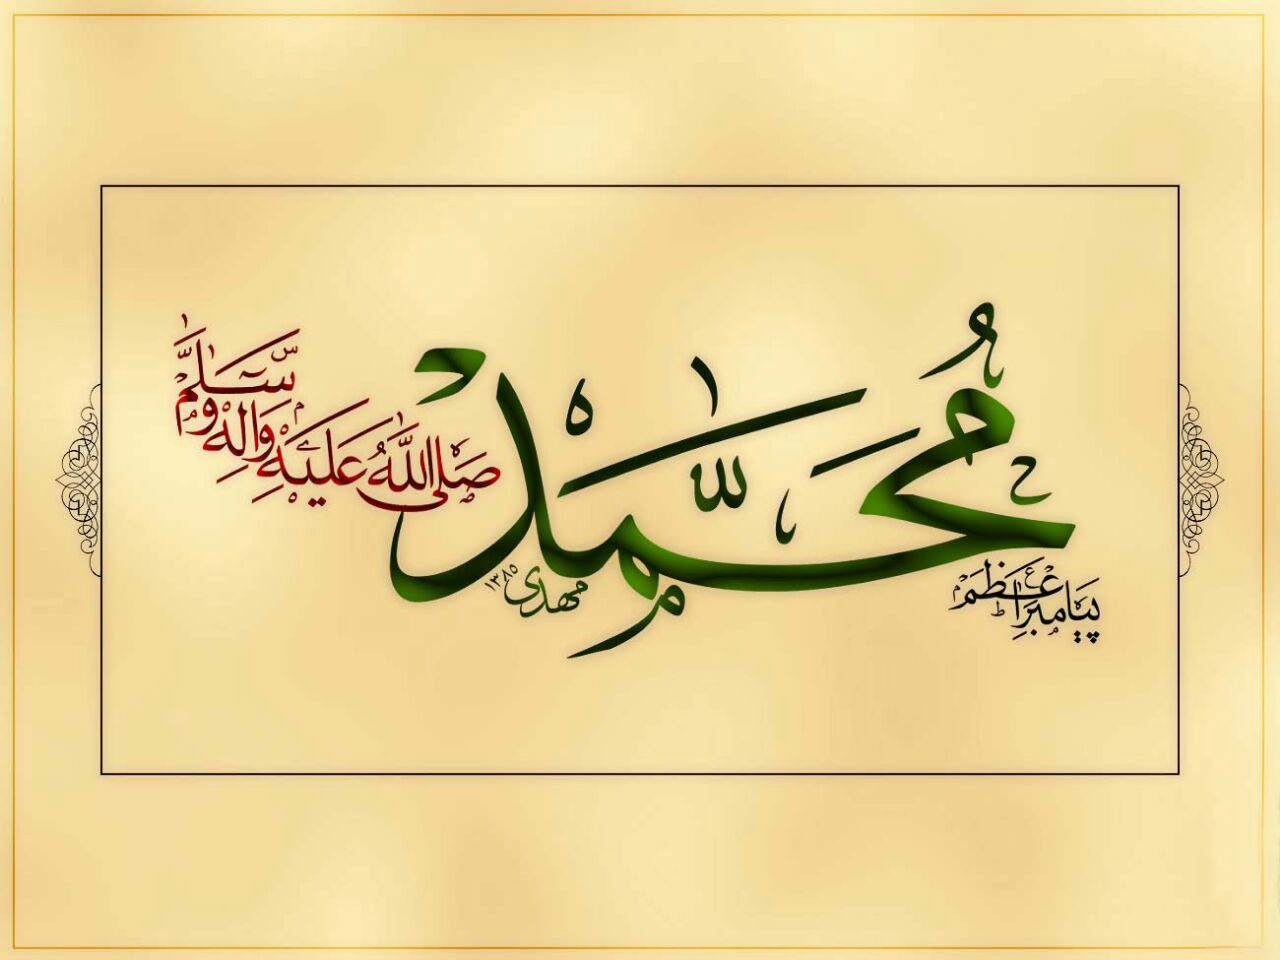 پیامبر اعظم
مُحَمَّد
صَلَی اللهُ عَلَیْهِ وَ الِهِ وَ سَلَّمَ
مهدی ۱۳۸۵